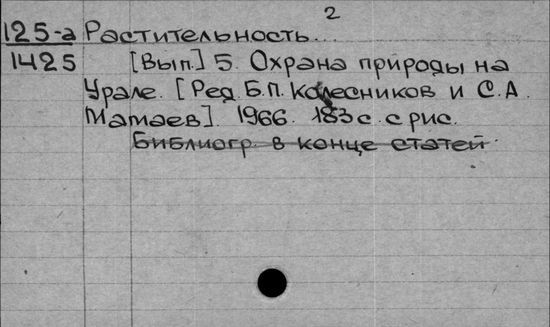 2
125-а Растительность...
1425 [Вып.] 5. Охрана природы на
Урале. [Ред. Б.П. Колесников и С.А.
Мамаев]. 1966. 183 с. с рис.
Библиогр. в конце статей.